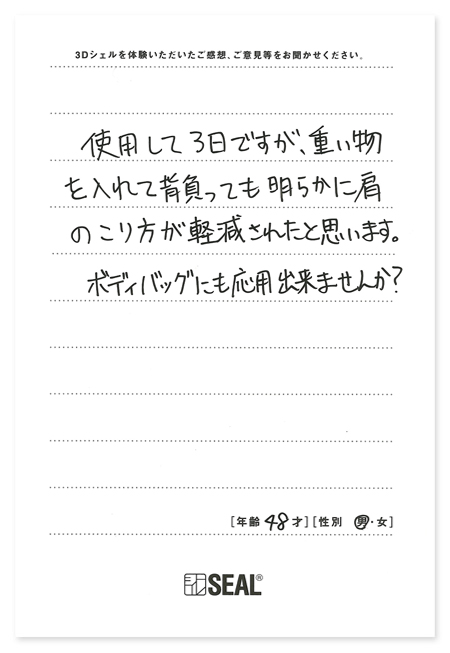 3Dシェルを体験いただいたご感想、ご意見等をお聞かせください。
使用して3日ですが、重い物
を入れて背負っても明らかに肩
のこり方が軽減されたと思います。
ボディバッグにも応用出来ませんか?
[年齢 48 才] [性別 男・女]
SEAL®